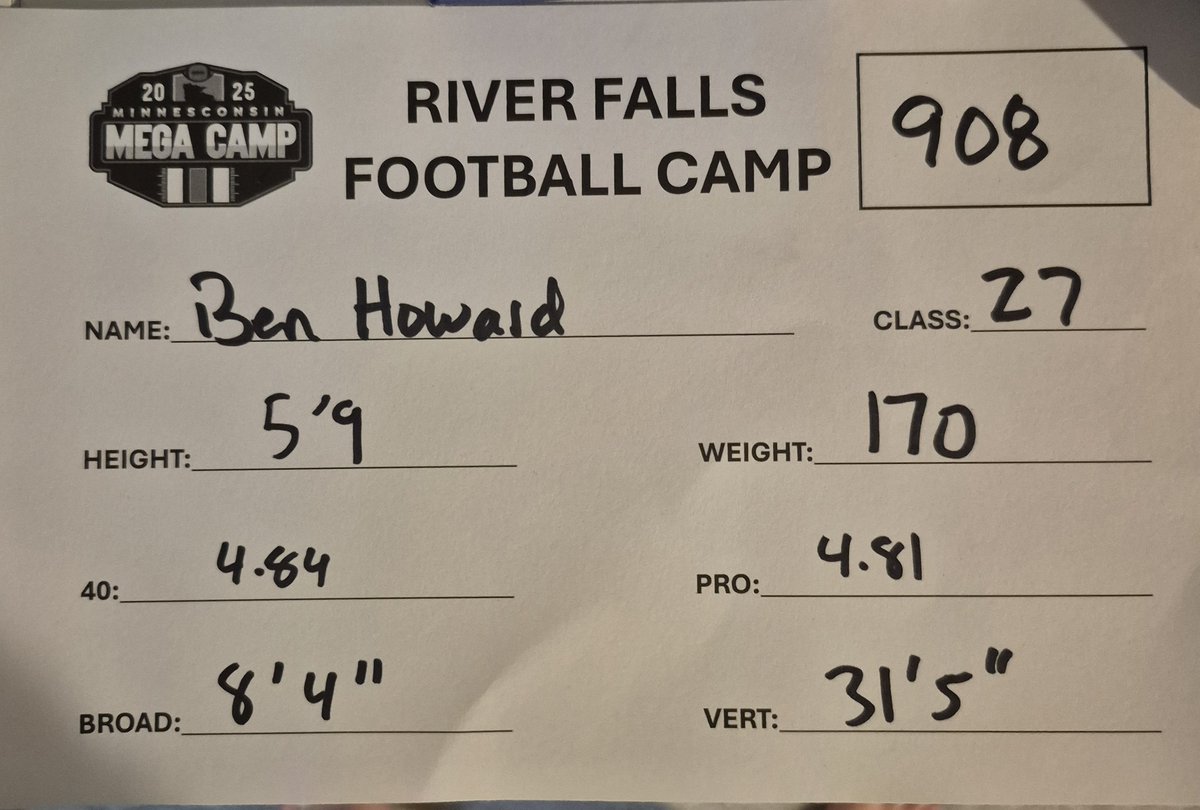 20 25
MINNESCONSIN
MEGA CAMP
RIVER FALLS
FOOTBALL CAMP
908
NAME: Ben Howard CLASS: 27
HEIGHT: 5'9 WEIGHT: 170
40: 4.84 PRO: 4.81
BROAD: 8'4" VERT: 31'5"